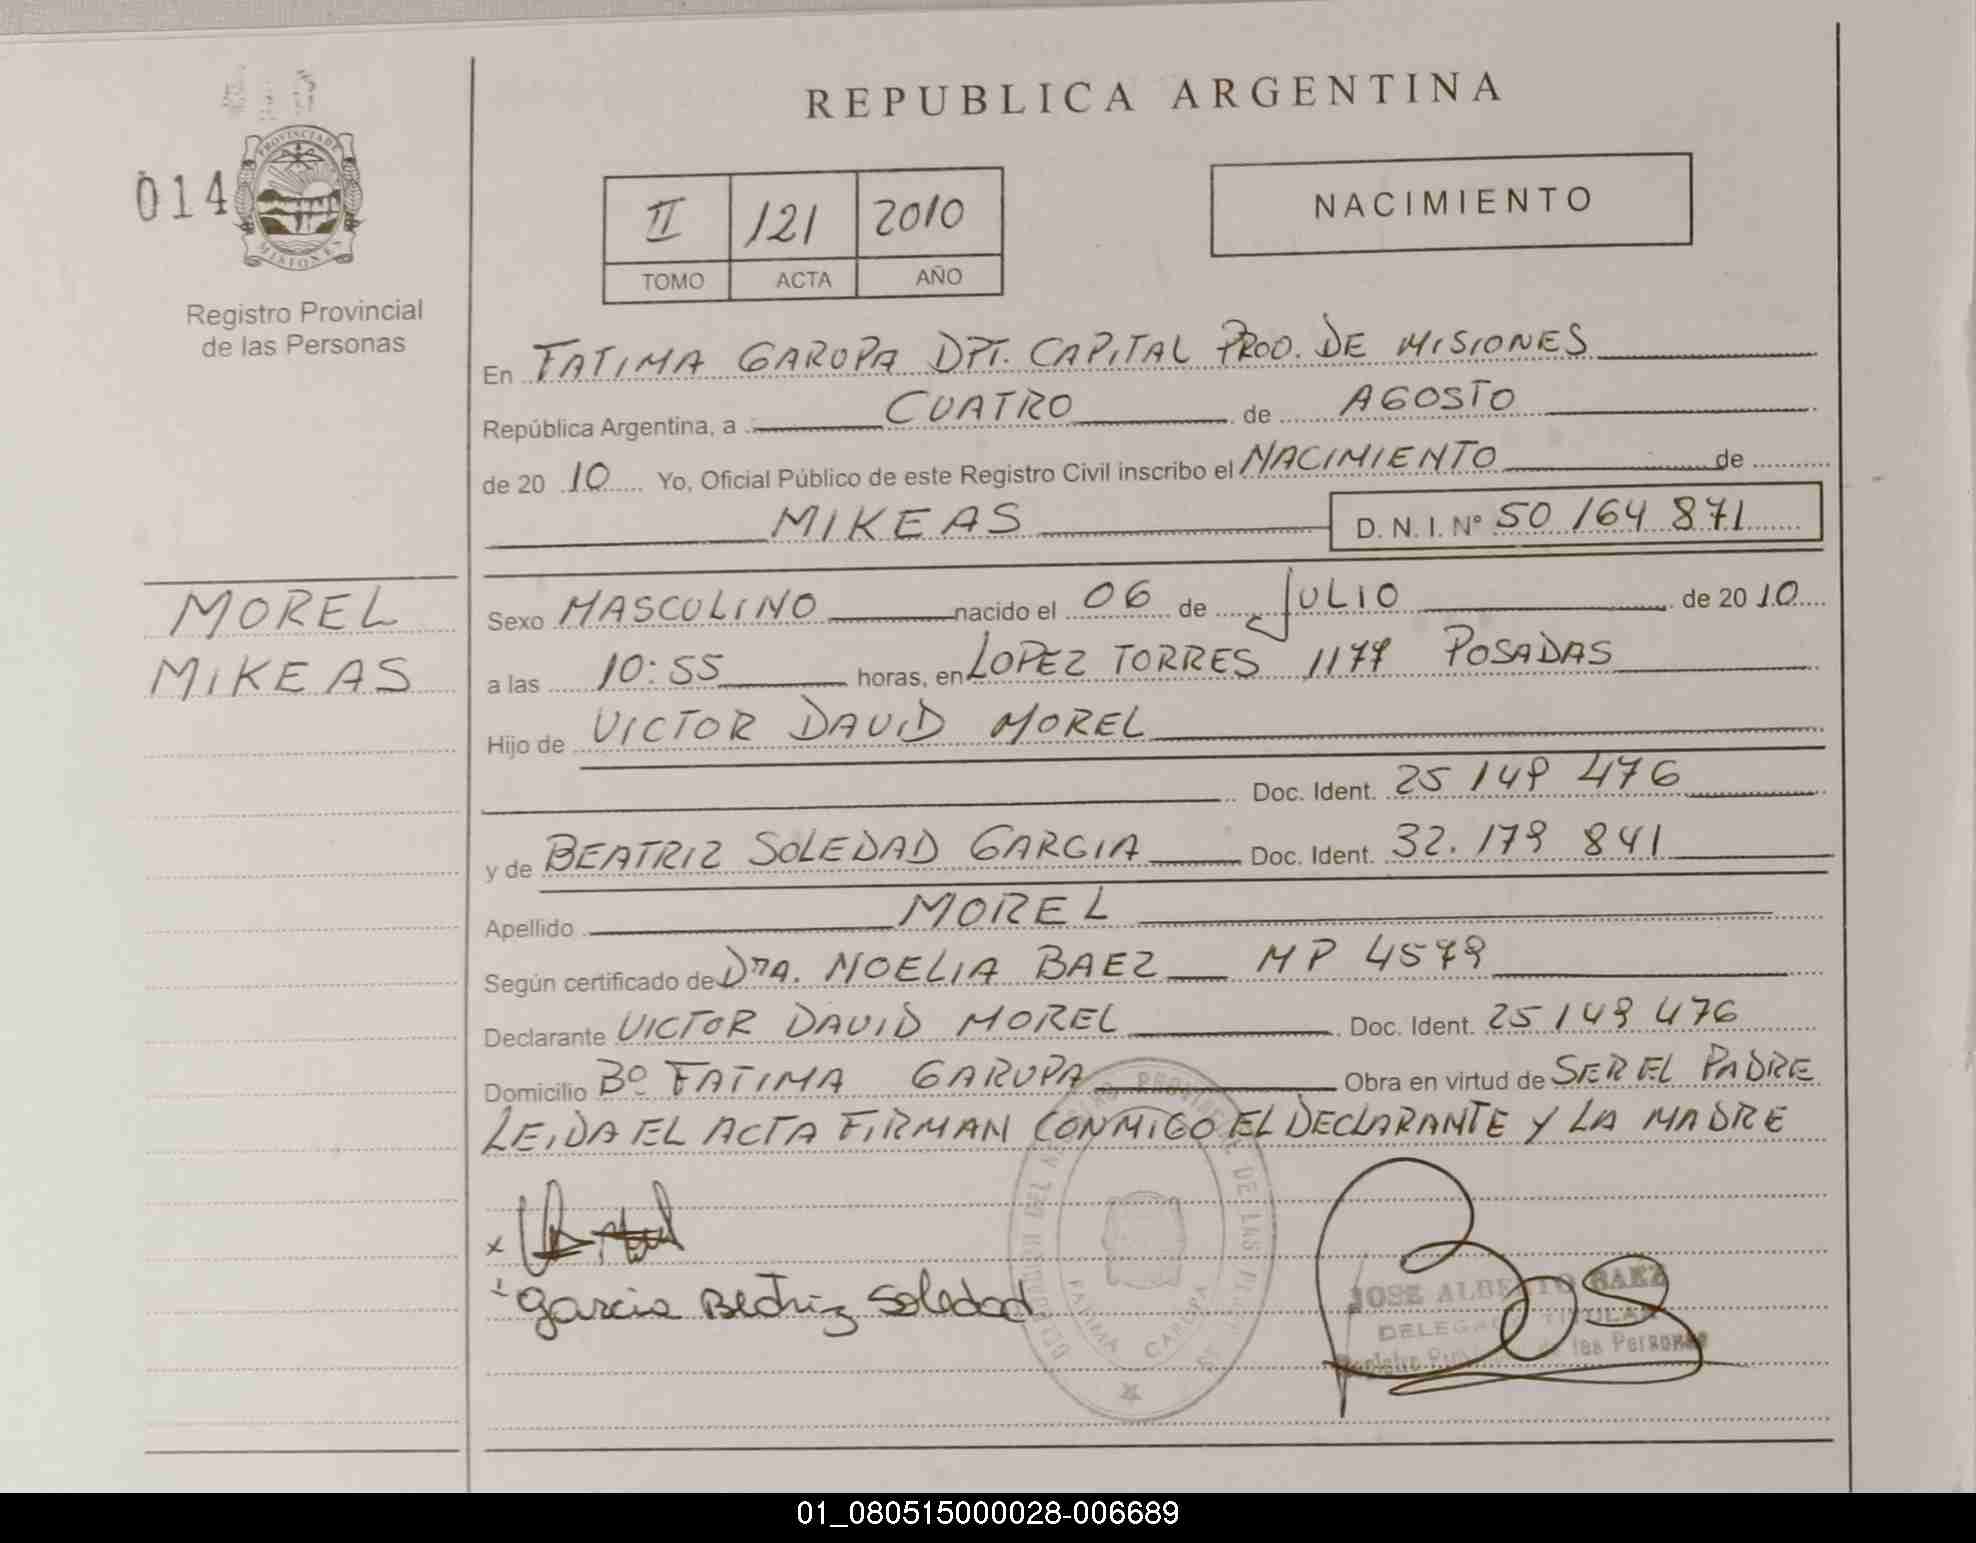 REPUBLICA ARGENTINA
014
PROVINCIA DE
MISIONES
Registro Provincial
de las Personas
II 121 2010
TOMO ACTA AÑO
NACIMIENTO
En FATIMA GARUPA DPT. CAPITAL PROV. DE MISIONES
República Argentina, a CUATRO de AGOSTO
de 20 10 Yo, Oficial Público de este Registro Civil inscribo el NACIMIENTO de
MIKEAS D. N. I. Nº 50 164 871
MOREL
MIKEAS
Sexo MASCULINO nacido el 06 de JULIO de 20 10
a las 10:55 horas, en LOPEZ TORRES 1177 POSADAS
Hijo de VICTOR DAVID MOREL
Doc. Ident. 25 149 476
y de BEATRIZ SOLEDAD GARCIA Doc. Ident. 32.179 841
Apellido MOREL
Según certificado de DRA. NOELIA BAEZ MP 4579
Declarante VICTOR DAVID MOREL Doc. Ident. 25 149 476
Domicilio Bº FATIMA GARUPA Obra en virtud de SER EL PADRE
LEIDA EL ACTA FIRMAN CONMIGO EL DECLARANTE Y LA MADRE
x
Garcia Beatriz Soledad
FATIMA GARUPA
JOSE ALBERTO BAEZ
DELEGADO TITULAR
Registro Provincial de las Personas
01_080515000028-006689